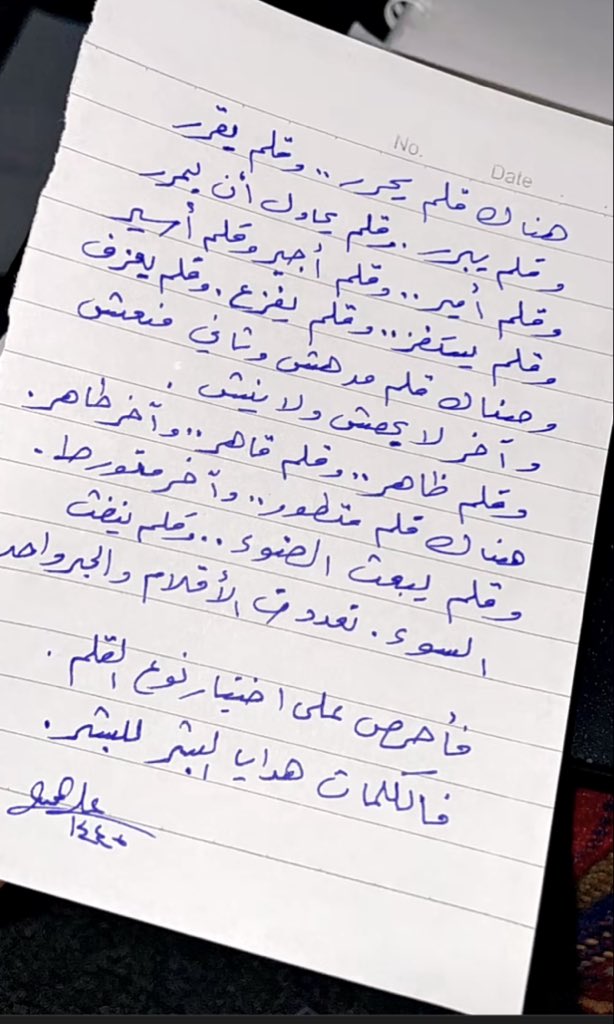 No. Date
هناك قلم يحرر .. وقلم يقرر
وقلم يبرر . وقلم يحاول أن يمرر
وقلم أمير .. وقلم أجير وقلم أسير
وقلم يستفز .. وقلم يفزع . وقلم يعزف
وهناك قلم مدهش وثاني منعش
وآخر لا يهش ولا ينش .
وقلم ظاهر .. وقلم قاهر .. وآخر طاهر .
هناك قلم متطور .. وآخر متورط .
وقلم يبعث الضوء .. وقلم ينفث
السوء . تعددت الأقلام والحبر واحد
فأحرص على اختيار نوع القلم .
فالكلمات هدايا البشر للبشر .